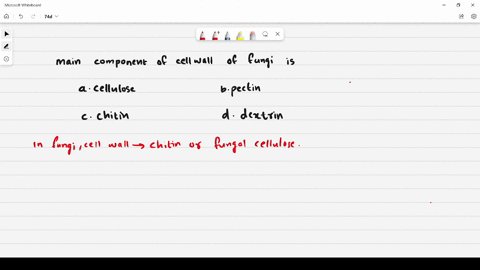 Microsoft Whiteboard
74d
main component of cell wall of fungi is
a. cellulose b. pectin
c. chitin d. dextrin
In fungi, cell wall → chitin or fungal cellulose.